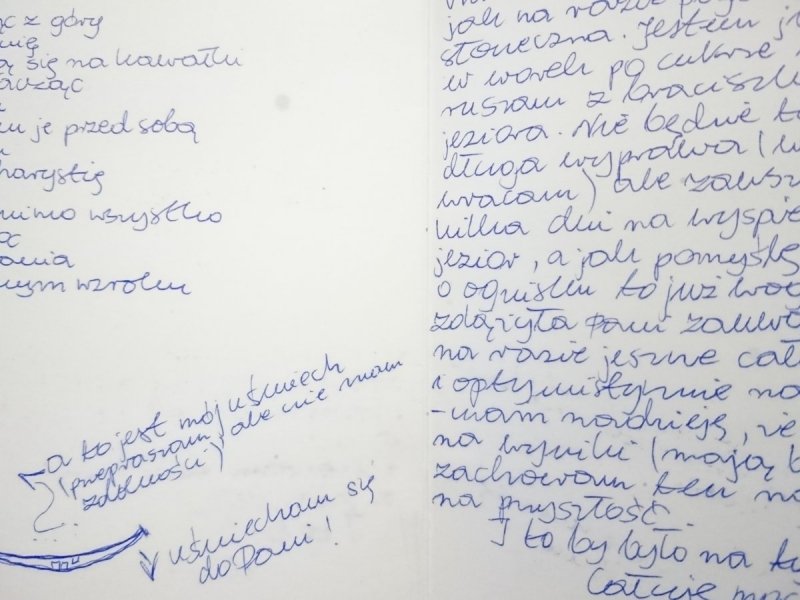 z góry
się na kawałki
je przed sobą
mimo wszystko
wzroku
a to jest mój uśmiech
(przepraszam, ale nie mam
zdolności)
uśmiecham się
do Pani!
jak na razie
słoneczna. Jestem
w worek po cukrze
ruszam z braciszk
jeziora. Nie będzie to
długa wyprawa (w
wracam) ale zawsz
kilka dni na wyspie
jezior, a jak pomyślę
o ognisku to już
zdążyła Pani zauw
na razie jeszcze cał
i optymistycznie na
-mam nadzieję, że
na wyniki (mają b
zachowam ten na
na przyszłość.
I to by było na ty
Całuję moc